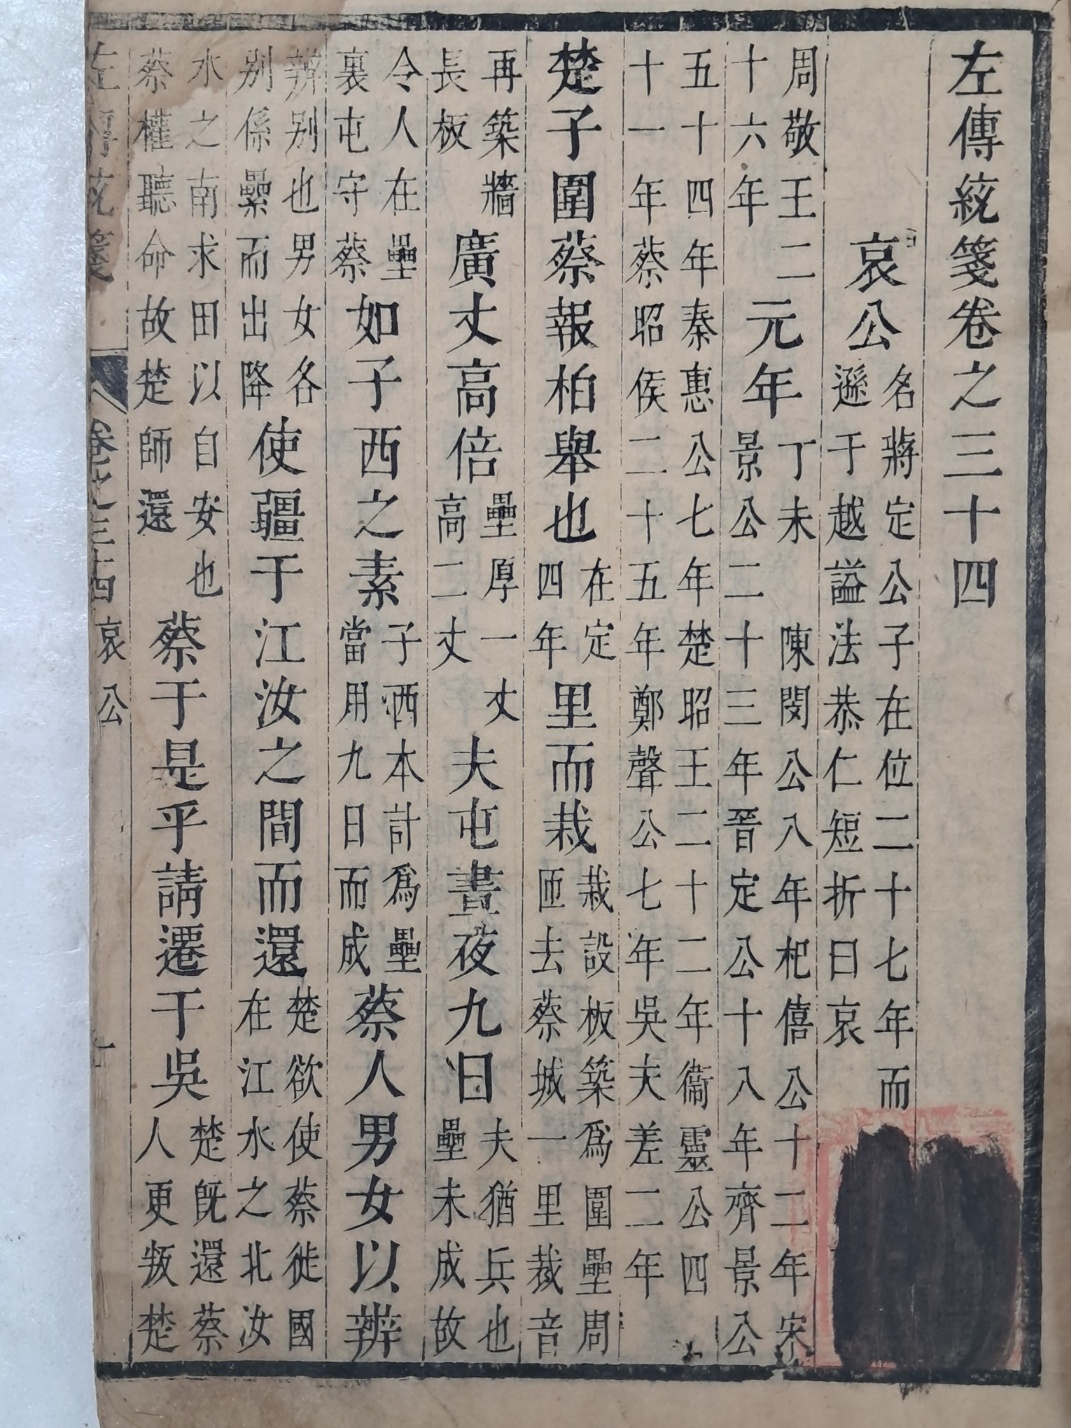 左傳統箋卷之三十四
哀公名蔣定公子在位二十七年而
遜于越謚法恭仁短折曰哀
周敬王二
十六年
元年丁未 陳閔公八年杞僖公十二年宋
景公二十三年晉定公十八年齊景公
五十四年秦惠公七年楚昭王二十二年衞靈公四
十一年蔡昭侯二十五年鄭聲公七年吳夫差二年
楚子圍蔡報柏舉也在定
四年
里而栽栽設板築爲圍壘周
匝去蔡城一里栽音
再築牆
長板
廣丈高倍壘厚一丈
高二丈
夫屯晝夜九日夫猶兵也
壘未成故
令人在壘
裏屯守蔡
如子西之素子西本計爲壘
當用九日而成
蔡人男女以辨
辨别也男女各
别係纍而出降
使疆于江汝之間而還楚欲使蔡徙國
在江水之北汝
水之南求田以自安也
蔡權聽命故楚師還
蔡于是乎請遷于吳楚既還蔡
人更叛楚
左傳統箋
卷之三十四 哀公
一